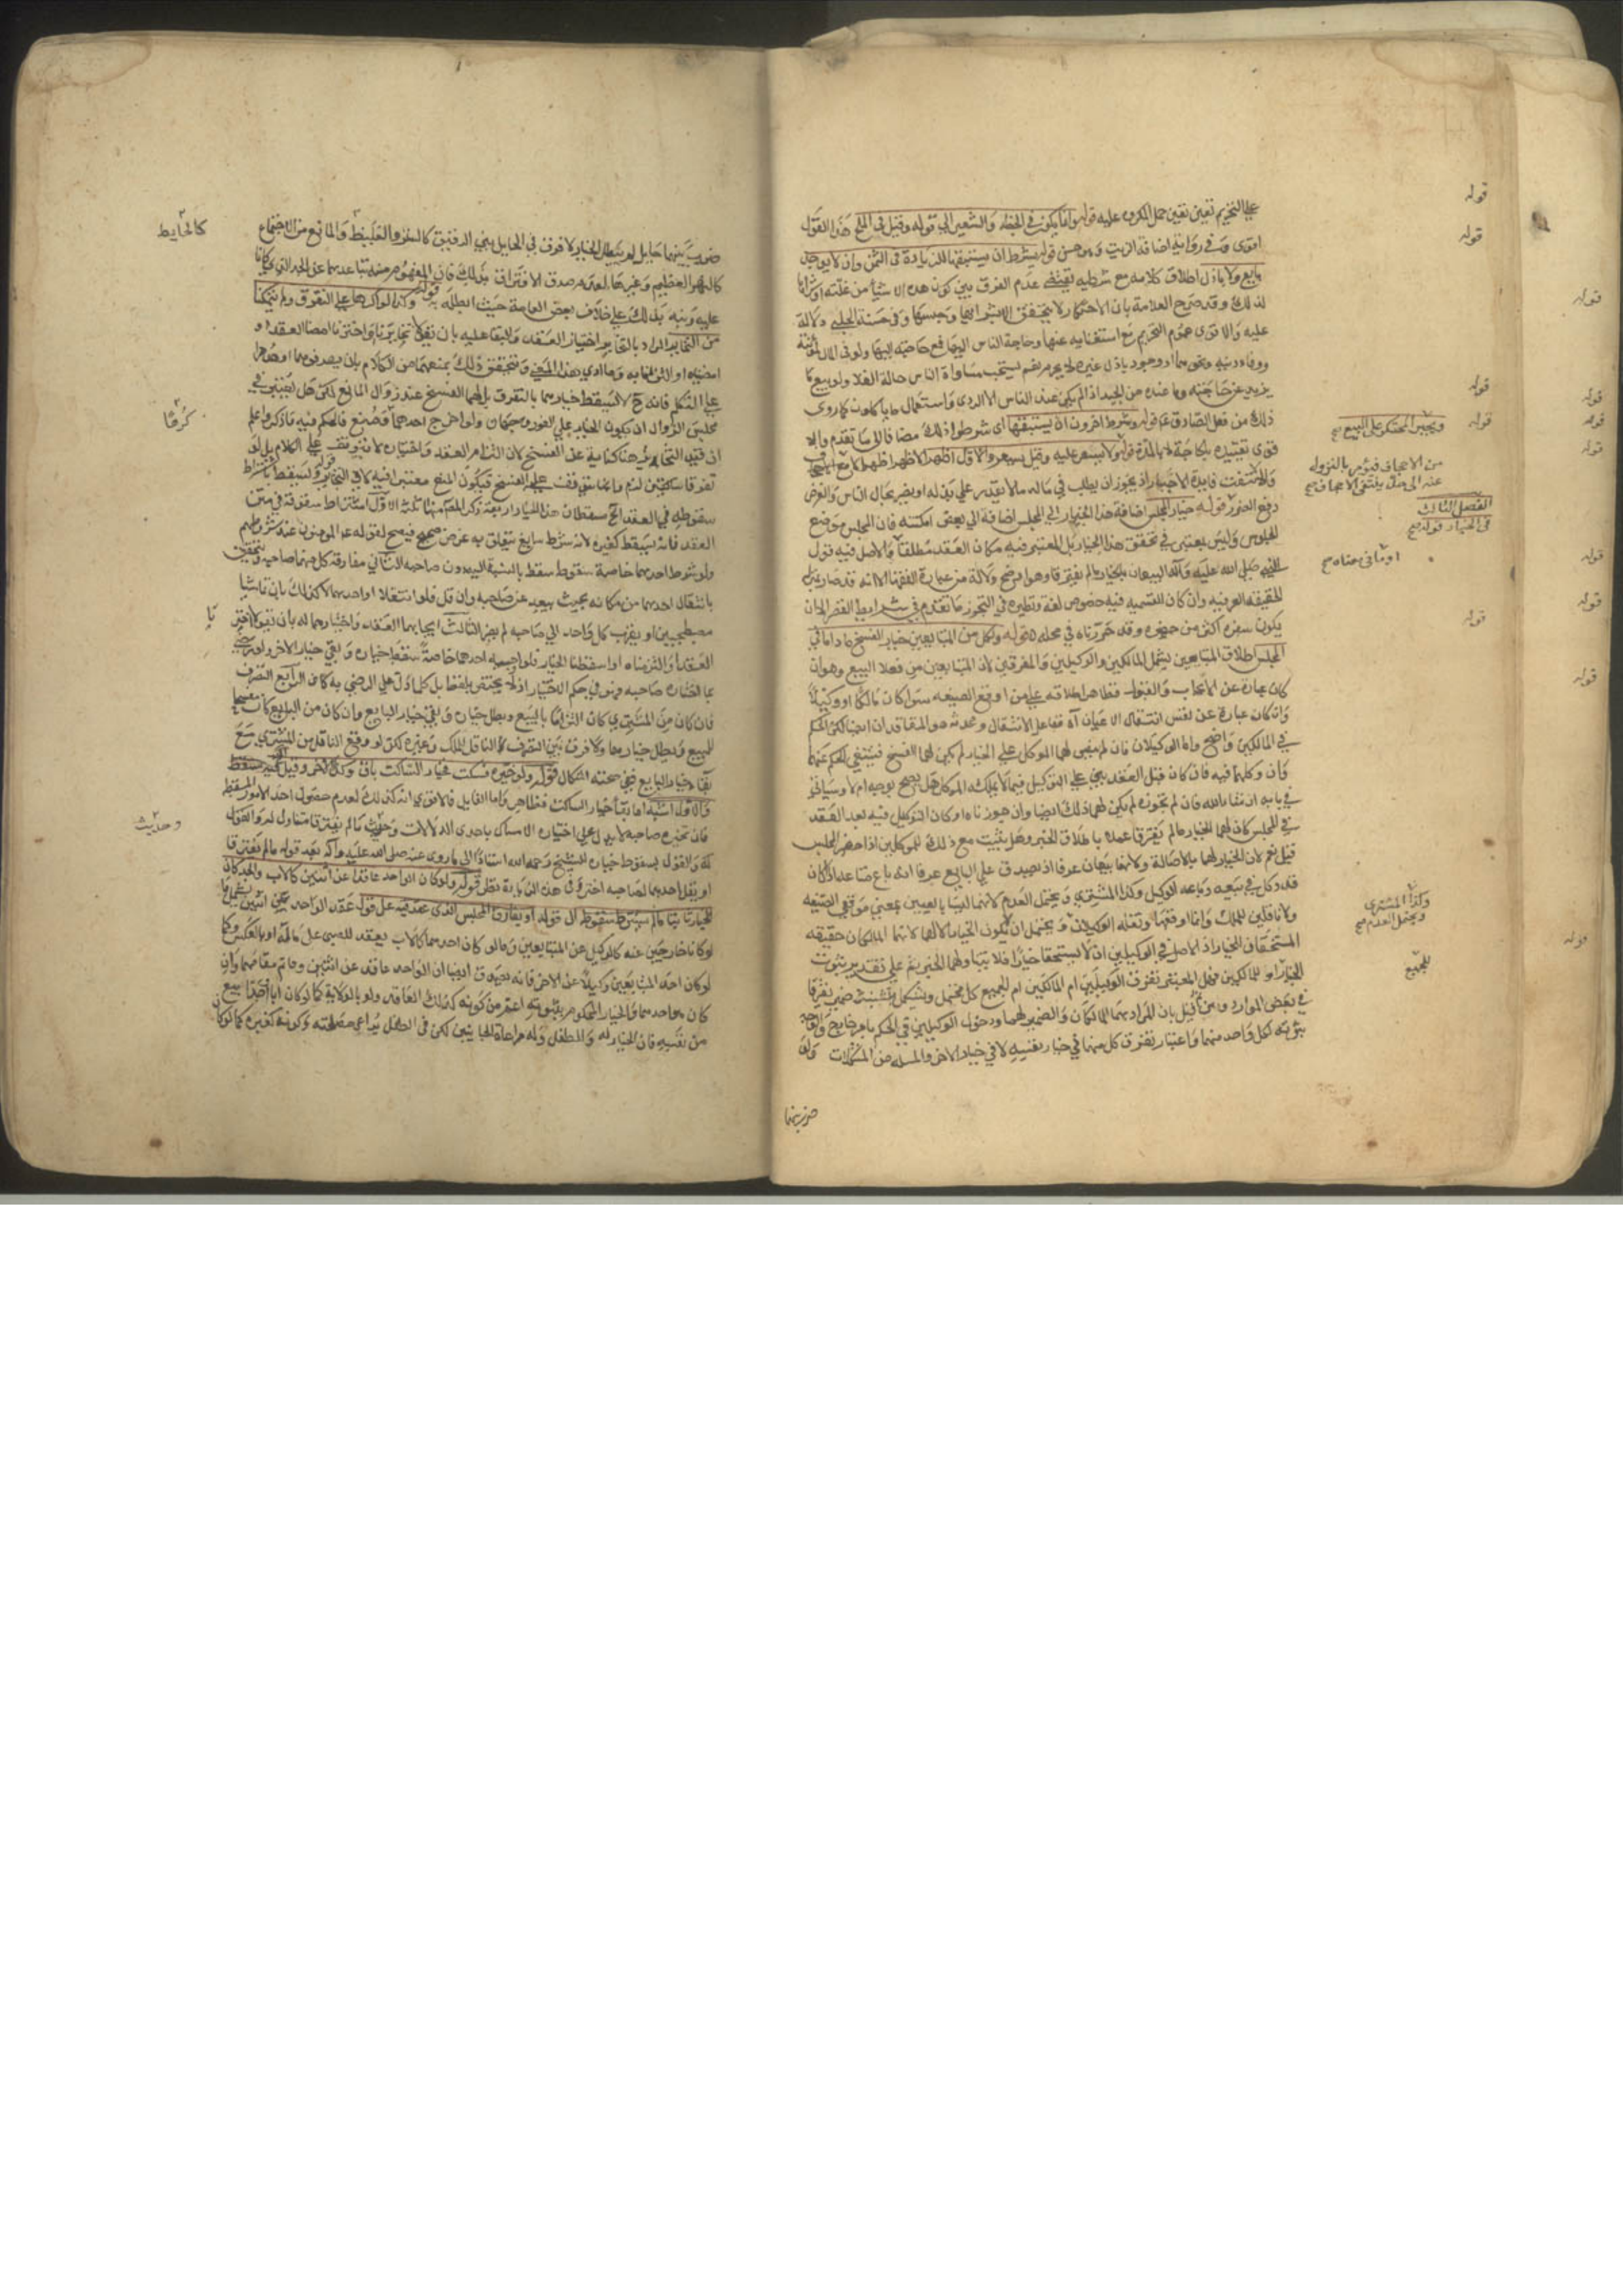 على التحريم تعين تعين حمل المكروه عليه قوله وانما يكون في الحنطة والشعير الى قوله وقيل في الملح هذا القول
اقوى وفي رواية اضافة الزيت وهو حسن قوله بشرط ان يستبقيها للزيادة في الثمن وان لا يوجد
بايع ولا باذل اطلاق كلامه مع شرطيه يقتضي عدم الفرق بين كون هذه الاشياء من غلته او شراها
لذلك وقد صرح العلامة بان الاحتكار لا يتحقق الا بشرائها وحبسها وفي حسنة الحلبي دلالة
عليه والاقوى عموم التحريم مع استغنائه عنها وحاجة الناس اليها فمع حاجته اليها ولو في
ووفاء دينه ونحوهما او وجود باذل غيره لا يحرم نعم يستحب مساواة الناس حالة الغلا ولو ببيع ما
يزيد عن حاجته وما عنده من الجيد اذا لم يكن عند الناس الا الردى واستعمال ما ياكلون كما روى
ذلك من فعل الصادق ع قوله وشرط اخرون ان يستبقيها اى شرطوا ذلك مضافا الى ما تقدم والا
قوى تقييده بالحاجة لا بالمدة قوله ولا يسعر عليه وقيل يسعر والاول اظهر الاظهر اظهر الا مع الاجحاف
والا لانتفت فايدة الاجبار اذ يجوز ان يطلب في ماله ما لا يقدر على بذله او يضر بحال الناس والغرض
دفع الضرر قوله خيار المجلس اضافة هذا الخيار الى المجلس اضافة الى بعض امكنته فان المجلس موضع
الجلوس وليس بمعتبر في تحقق هذا الخيار بل المعتبر فيه مكان العقد مطلقا والاصل فيه قول
النبي صلى الله عليه وآله البيعان بالخيار ما لم يفترقا وهو اوضح دلالة من عبارة الفقها الا انه قد صار
الحقيقة العرفيه وان كان للتسميه فيه خصوص لغة ونظيره في التجوز ما تقدم في شرايط القصر ان
يكون سفره اكثر من حضره وقد حررناه في محله قوله ولكل من المتبايعين خيار الفسخ ما داما في
المجلس اطلاق المتبايعين يشمل المالكين والوكيلين والمفرقين لان المتبايعين من فعلا البيع وهو ان
كان عبارة عن الايجاب والقبول فظاهر اطلاقه على من اوقع الصيغه سواء كان مالكا او وكيلا
وان كان عبارة عن نفس انتقال الاعيان آه ففاعل الانتقال ومحدثه هو المتعاقدان ايضا لكن الحكم
في المالكين واضح واما الوكيلان فان لم ينص لهما الموكل على الخيار لم يكن لهما الفسخ فينتفي الحكم عنهما
وان وكلهما فيه فان كان قبل العقد بنى على التوكيل فيما لا يملكه الموكل هل يصح بوجه ام لا وسياتى
في بابه ان شاء الله فان لم نجوزه لم يكن لهما ذلك ايضا وان جوزناه او كان التوكيل فيه بعد العقد
في المجلس كان لهما الخيار ما لم يفترقا عملا باطلاق الخبر وهل يثبت مع ذلك للموكلين اذا حضر المجلس
قيل نعم لان الخيار لهما بالاصالة ولانهما بيعان عرفا اذ يصدق على البايع عرفا انه باع متاعه اذا كان
قد وكل في بيعه وباعه الوكيل وكذا المشترى ويحتمل العدم لانهما ليسا بالعيين بمعنى موقعي الصيغه
ولا ناقلين للملك وانما اوقعها ونقله الوكيلان ويحتمل ان يكون الخيار لهما لانهما المالكان حقيقه
المستحقان الخيار اذ الاصل في الوكيلين ان لا يستحقا خيارا فلا يتناولهما الخبر ثم على تقدير ثبوت
الخيار للمالكين فهل المعتبر تفرق الوكيلين ام المالكين ام الجميع كل محتمل ويشكل ضمير يفترقا
في بعض الموارد ومن ثم قيل بان المراد بهما المالكان والضمير لهما ودخول الوكيلين في الحكم بامر خارج والاوجه
ثبوته لكل واحد منهما واعتبار تفرق كل منهما في خيار نفسه لا في خيار الاخر والمسئله من المشكلات ولو
ضرب بينهما
قوله
قوله
قوله
قوله
قوله
ويجبر المحتكر على البيع صح
من الاجحاف فيؤمر بالنزول
عنه الى حد ينتفي الاجحاف صح
الفصل الثالث
في الخيار قوله صح
او ما في معناه صح
قوله
وكذا المشترى
ويحتمل العدم صح
للجميع
قوله
قوله
قوله
قوله
قوله
قوله
قوله
قوله
ضرب بينهما حايل لم يبطل الخيار لا فرق في الحايل بين الرقيق كالستر والغليظ والمانع من الاجتماع
كالنهر العظيم وغيرها لعدم صدق الافتراق بذلك فان المفهوم منه تباعدهما عن الحد الذي كانا
عليه ونبه بذلك على خلاف بعض العامة حيث ابطله قوله وكذا لو اكرها على التفرق ولم يتمكنا
من التخاير المراد بالتخاير اختيار العقد والبقا عليه بان يقولا تخايرنا او اخترنا امضا العقد او
امضيناه او التزمنا به وما ادى هذا المعنى ويتحقق ذلك بمنعهما من الكلام بان يصرفوهما
على التكلم فانه ح لا يسقط خيارهما بالتفرق بل لهما الفسخ عند زوال المانع لكن هل يعتبر في
مجلس الزوال ان يكون الخيار على الفور وجهان ولو اخرج احدهما فالحكم فيه ما ذكر واعلم
ان قيد التخاير هنا كناية عن الفسخ لان التزام العقد واختياره لا يتوقف على الكلام بل لو
تفرقا ساكتين لزم وانما يتوقف عليه الفسخ فيكون المنع معتبرا فيه لا في التخاير قوله ويسقط باشتراط
سقوطه في العقد الخ مسقطات هذا الخيار اربعة ذكر المص منها ثلثة الاول اشتراط سقوطه في متن
العقد فانه يسقط كغيره لانه شرط سايغ يتعلق به غرض صحيح فيصح لقوله ع المؤمنون عند شروطهم
ولو شرط احدهما خاصة سقوط سقط بالنسبة اليه دون صاحبه الثاني مفارقة كل منهما صاحبه ويتحقق
بانتقال احدهما من مكانه بحيث يبعد عن صاحبه وان قل فلو انتقلا او احدهما لا كذلك بان تماشيا
مصطحبين او يقرب كل واحد الى صاحبه لم يضر الثالث ايجابهما العقد واختيارهما له بان يقولا اخترنا
العقد او التزمناه او اسقطنا الخيار فلو اوجبه احدهما خاصة سقط خياره وبقي خيار الاخر ولو رضي
بما اختاره صاحبه فهو في حكم الاختيار اذ لا يختص بلفظ بل كلما دل على الرضى به كاف الرابع التصرف
فان كان من المشترى كان التزاما بالبيع وبطل خياره وبقي خيار البايع وان كان من البايع كان فسخا
للبيع وبطل خيارهما ولا فرق بين التصرف الناقل للملك وغيره لكن لو وقع الناقل من المشتري مع
بقاء خيار البايع ففي صحته اشكال قوله ولو خيره فسكت فخيار الساكت باق وكذا الاخر وقيل يسقط
والاول اشبه اما بقاء خيار الساكت فظاهر واما القايل فالاقوى انه كذلك لعدم حصول احد الامور المسقطه
فان تخييره صاحبه لا يدل على اختياره الامساك باحدى الدلالات وحديث ما لم يفترقا متناول له والقول
له والقول بسقوط خياره للشيخ رحمه الله استنادا الى ما روى عنه صلى الله عليه وآله بعد قوله ما لم يفترقا
او يقل احدهما لصاحبه اختر وفي هذه الزيادة نظر قوله ولو كان الواحد عاقدا عن اثنين كالاب والجد كان
الخيار ثابتا ما لم يشترط سقوطه او يفارقا المجلس الذي عقد فيه على قول عقد الواحد عن اثنين يشمل ما
لو كانا خارجين عنه كالوكيل عن المتبايعين وما لو كان احدهما كالاب يعقد للصبي على ماله او بالعكس وكما
لو كان احد المتبايعين وكيلا عن الاخر فانه يصدق ايضا ان الواحد عاقد عن اثنين وقايم مقامهما وان
كان هو احدهما والخيار المحكوم بثبوته اعم من كونه كذلك العاقد ولو بالولاية كما لو كان ابا
من نفسه فان الخيار له وللطفل وله مراعاة الجانبين لكن في الطفل يراعي مصلحته وكونه كغيره كما لو كان
كالحايط
كرها
نا
وحديث